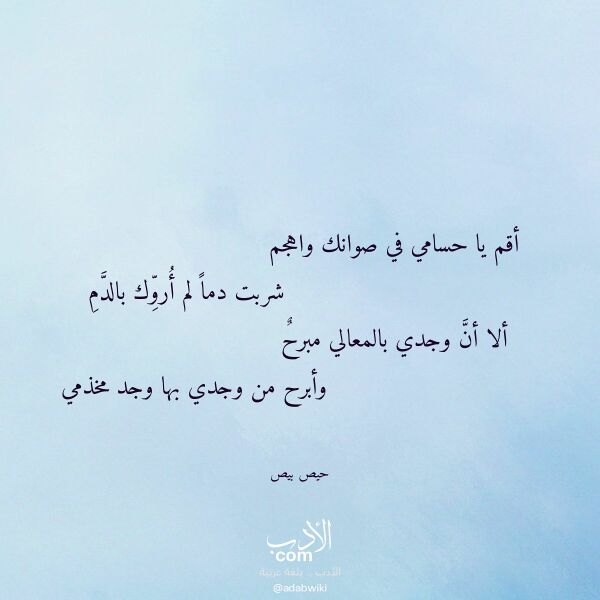 أقم يا حسامي في صوانك واهجم
شربت دماً لم أُروِّك بالدَّمِ
ألا أنَّ وجدي بالمعالي مبرحٌ
وأبرح من وجدي بها وجد مخذمي
حيص بيص
الأدب
com
الأدب .. بلغة عربية
@adabwiki